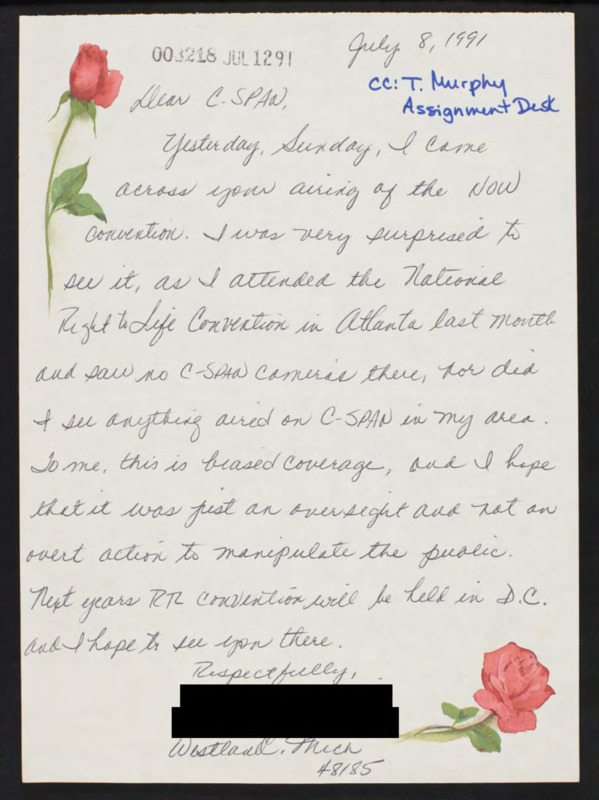 003218 JUL 12 91
July 8, 1991
cc: T. Murphy
Assignment Desk
Dear C-SPAN,
Yesterday, Sunday, I came
across your airing of the NOW
convention. I was very surprised to
see it, as I attended the National
Right to Life Convention in Atlanta last month
and saw no C-SPAN cameras there, nor did
I see anything aired on C-SPAN in my area.
To me, this is biased coverage, and I hope
that it was just an oversight and not an
overt action to manipulate the public.
Next years RTL convention will be held in D.C.
and I hope to see you there.
Respectfully,
Westland, Mich
48185